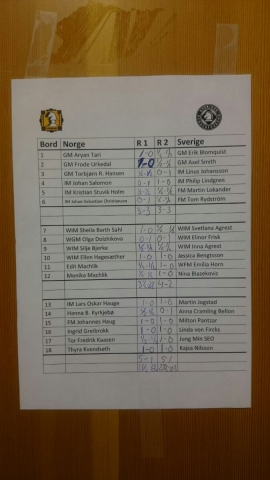 Bord Norge R 1 R 2 Sverige
1 GM Aryan Tari 1-0 ½-½ GM Erik Blomquist
2 GM Frode Urkedal 1-0 ½-½ GM Axel Smith
3 GM Torbjørn R. Hansen ½-½ 0-1 IM Linus Johansson
4 IM Johan Salomon 0-1 1-0 IM Philip Lindgren
5 IM Kristian Stuvik Holm ½-½ FM Martin Lokander
6 IM Johan-Sebastian Christiansen 0-1 ½-½ FM Tom Rydström
3-3 3-3
7 WIM Sheila Barth Sahl 1-0 ½-½ WIM Svetlana Agrest
8 WGM Olga Dolzhikova 0-1 WIM Elinor Frisk
9 WIM Silje Bjerke ½-½ ½-½ WIM Inna Agrest
10 WIM Ellen Hagesæther 0-1 1-0 Jessica Bengtsson
11 Edit Machlik ½-½ 1-0 WFM Emilia Horn
12 Monika Machlik ½-½ 1-0 Nina Blazekovic
4-2
13 IM Lars Oskar Hauge 1-0 1-0 Martin Jogstad
14 Hanna B. Kyrkjebø ½-½ 0-1 Anna Cramling Bellon
15 FM Johannes Haug 1-0 1-0 Milton Pantzar
16 Ingrid Greibrokk 1-0 1-0 Linda von Fircks
17 Tor Fredrik Kaasen ½-½ 1-0 Jung Min SEO
18 Thyra Kvendseth 1-0 1-0 Kajsa Nilsson
5-1 5-1